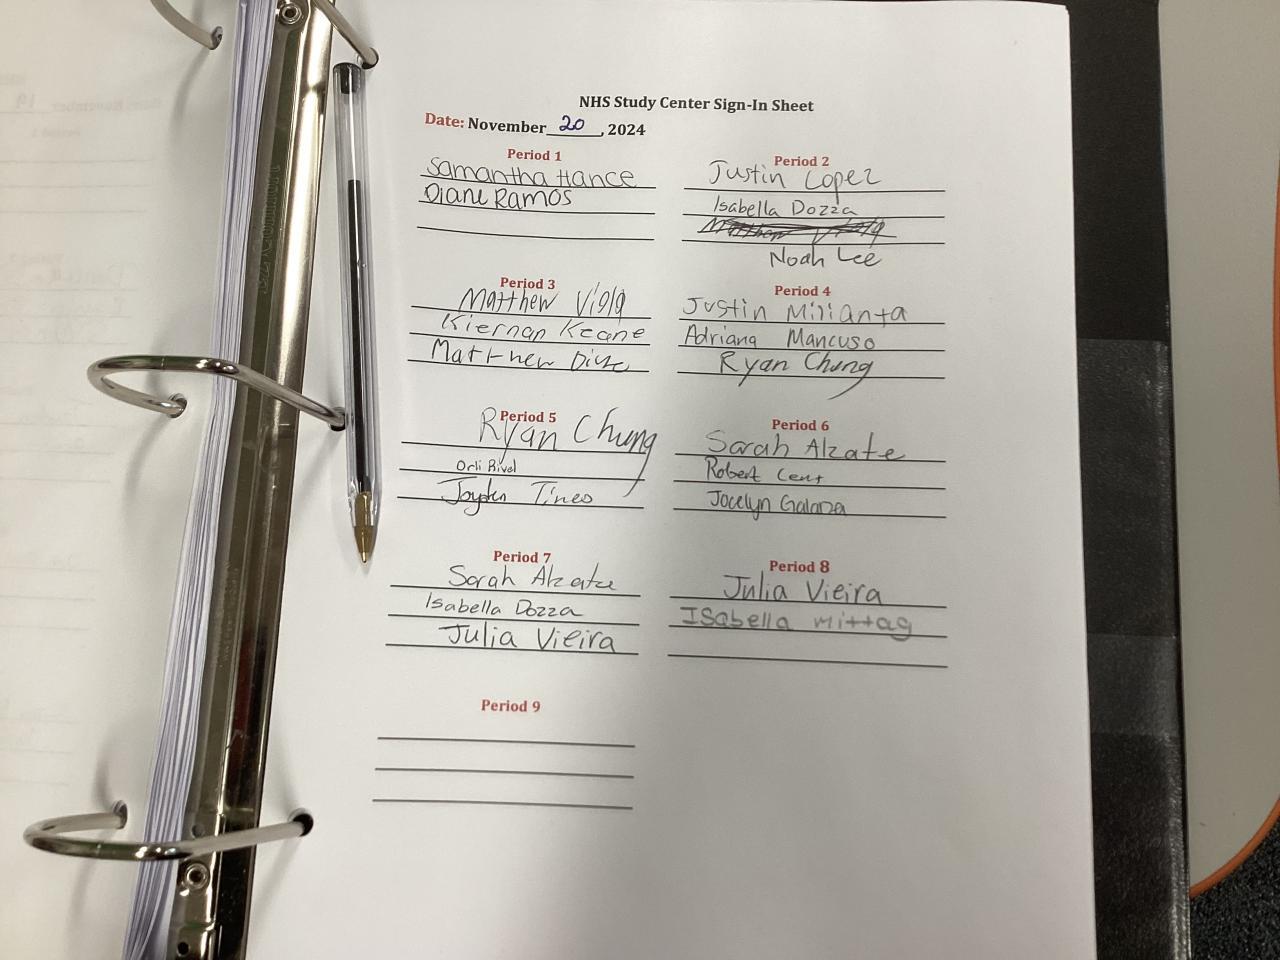 NHS Study Center Sign-In Sheet
Date: November 20, 2024
Period 1
Samantha Hance
Diane Ramos
Period 2
Justin Lopez
Isabella Dozza
Matthew Viola
Noah Lee
Period 3
Matthew Viola
Kiernan Keane
Matthew
Period 4
Justin Milianta
Adriana Mancuso
Ryan Chung
Period 5
Ryan Chung
Orli
Jayden Tineo
Period 6
Sarah Alzate
Robert
Jocelyn
Period 7
Sarah Alzate
Isabella Dozza
Julia Vieira
Period 8
Julia Vieira
Isabella Mittag
Period 9